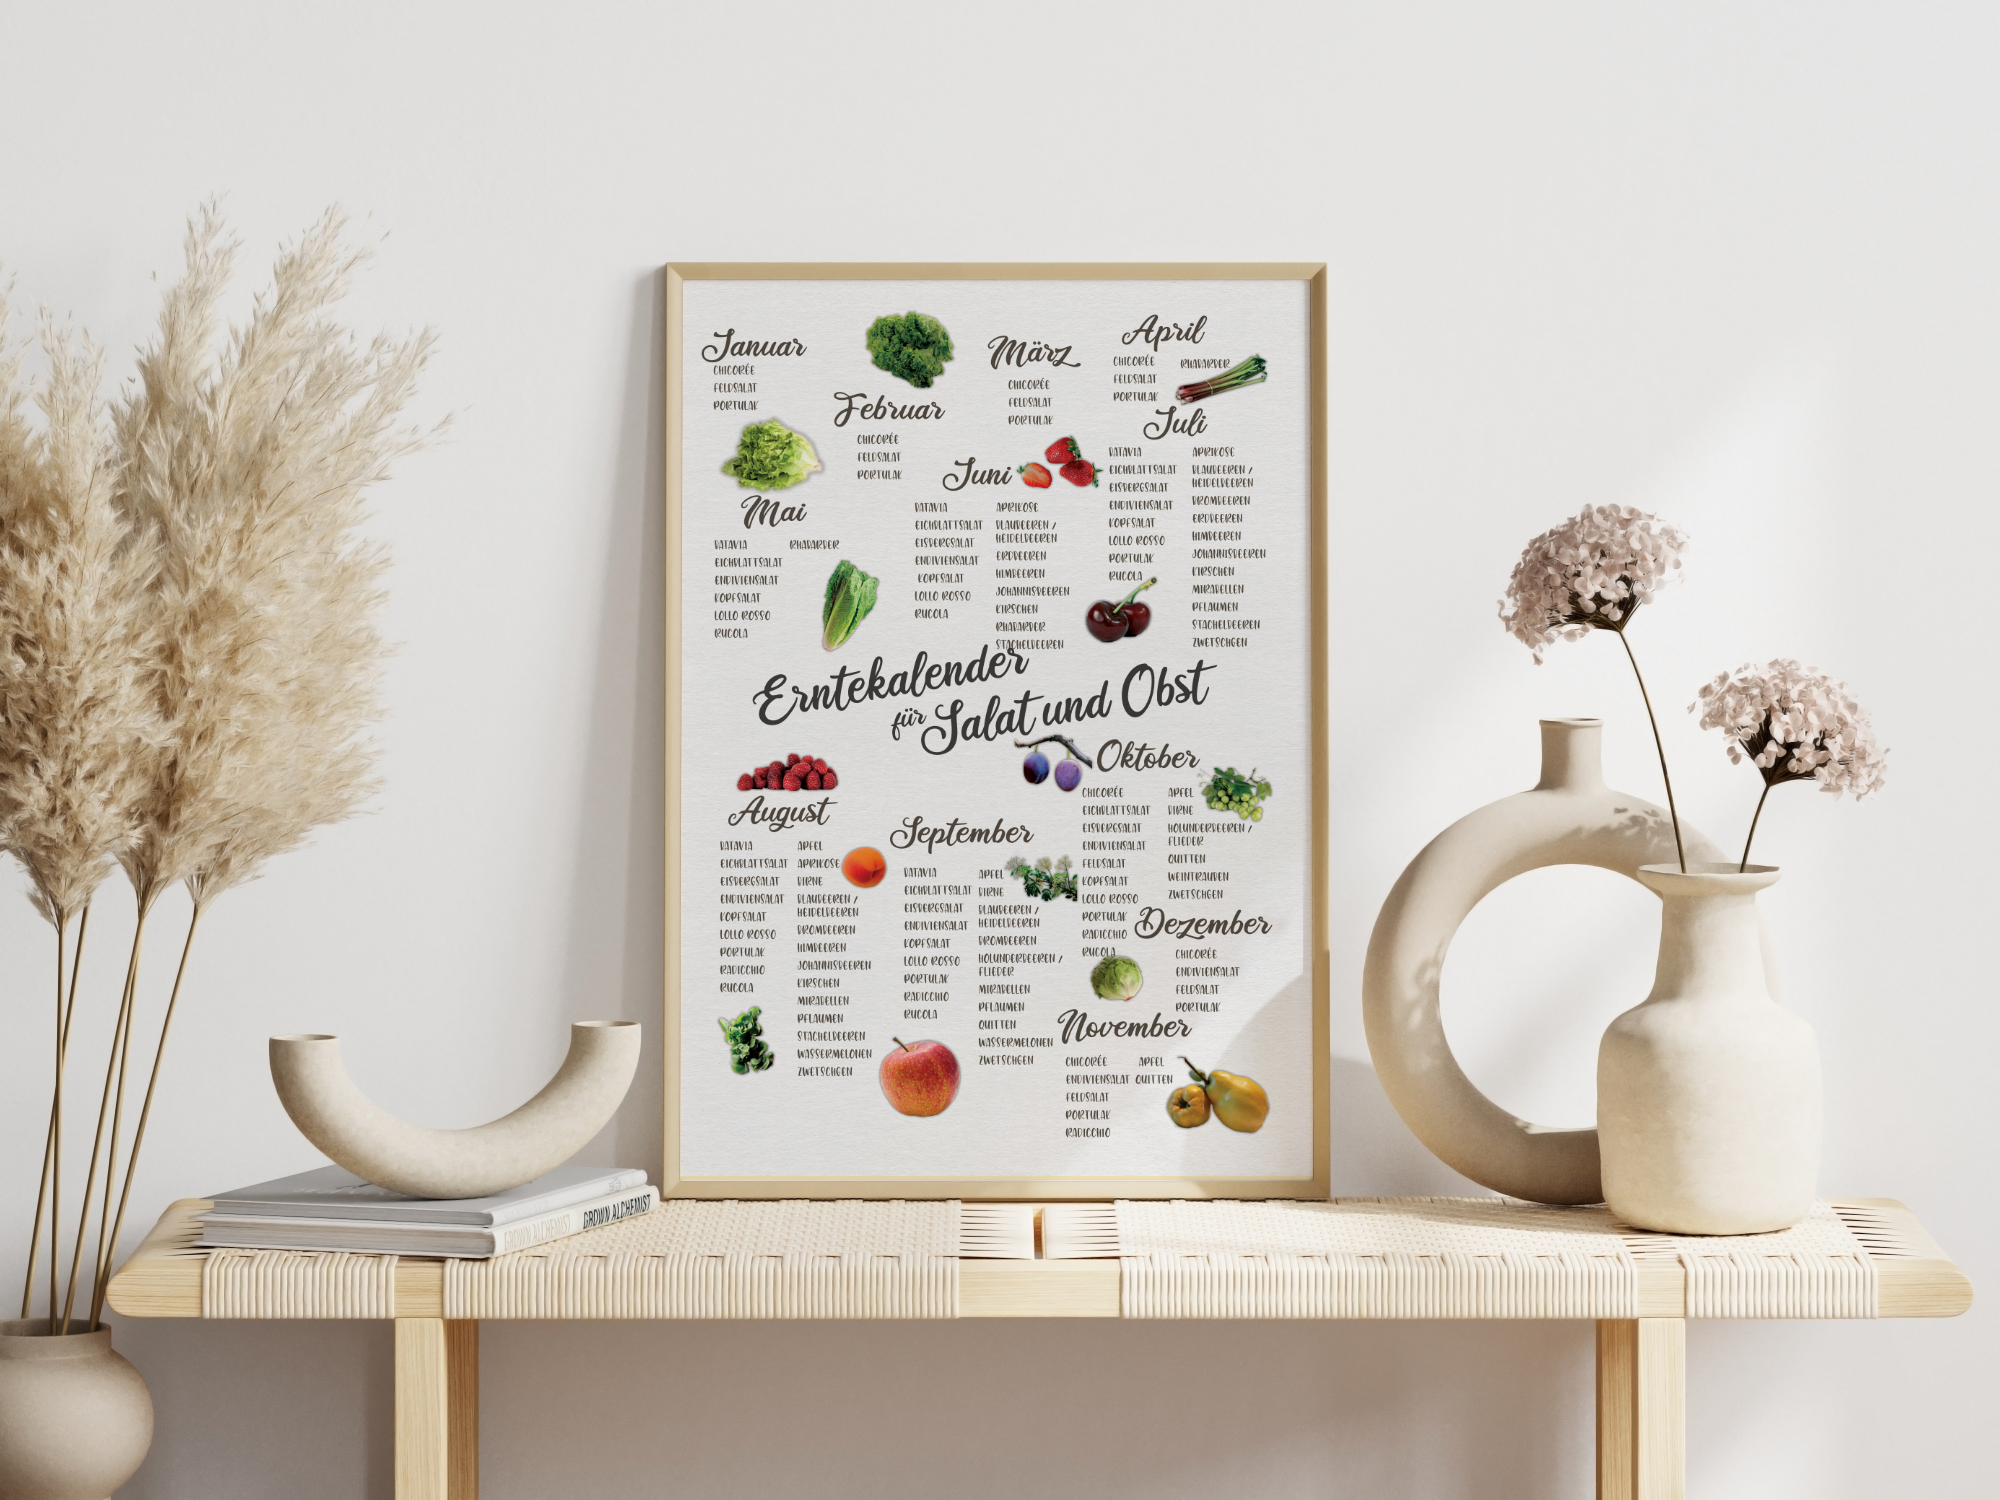 Januar
CHICORÉE
FELDSALAT
PORTULAK
Februar
CHICORÉE
FELDSALAT
PORTULAK
März
CHICORÉE
FELDSALAT
PORTULAK
April
CHICORÉE
FELDSALAT
PORTULAK
RHABARBER
Mai
BATAVIA
EICHBLATTSALAT
ENDIVIENSALAT
KOPFSALAT
LOLLO ROSSO
RUCOLA
RHABARBER
Juni
BATAVIA
EICHBLATTSALAT
EISBERGSALAT
ENDIVIENSALAT
KOPFSALAT
LOLLO ROSSO
RUCOLA
APRIKOSE
BLAUBEEREN /
HEIDELBEEREN
ERDBEEREN
HIMBEEREN
JOHANNISBEEREN
KIRSCHEN
RHABARBER
STACHELBEEREN
Juli
BATAVIA
EICHBLATTSALAT
EISBERGSALAT
ENDIVIENSALAT
KOPFSALAT
LOLLO ROSSO
PORTULAK
RUCOLA
APRIKOSE
BLAUBEEREN /
HEIDELBEEREN
BROMBEEREN
ERDBEEREN
HIMBEEREN
JOHANNISBEEREN
KIRSCHEN
MIRABELLEN
PFLAUMEN
STACHELBEEREN
ZWETSCHGEN
Erntekalender
für Salat und Obst
August
BATAVIA
EICHBLATTSALAT
EISBERGSALAT
ENDIVIENSALAT
KOPFSALAT
LOLLO ROSSO
PORTULAK
RADICCHIO
RUCOLA
APFEL
APRIKOSE
BIRNE
BLAUBEEREN /
HEIDELBEEREN
BROMBEEREN
HIMBEEREN
JOHANNISBEEREN
KIRSCHEN
MIRABELLEN
PFLAUMEN
STACHELBEEREN
WASSERMELONEN
ZWETSCHGEN
September
BATAVIA
EICHBLATTSALAT
EISBERGSALAT
ENDIVIENSALAT
KOPFSALAT
LOLLO ROSSO
PORTULAK
RADICCHIO
RUCOLA
APFEL
BIRNE
BLAUBEEREN /
HEIDELBEEREN
BROMBEEREN
HOLUNDERBEEREN /
FLIEDER
MIRABELLEN
PFLAUMEN
QUITTEN
WASSERMELONEN
ZWETSCHGEN
Oktober
CHICORÉE
EICHBLATTSALAT
EISBERGSALAT
ENDIVIENSALAT
FELDSALAT
KOPFSALAT
LOLLO ROSSO
PORTULAK
RADICCHIO
RUCOLA
APFEL
BIRNE
HOLUNDERBEEREN /
FLIEDER
QUITTEN
WEINTRAUBEN
ZWETSCHGEN
Dezember
CHICORÉE
ENDIVIENSALAT
FELDSALAT
PORTULAK
November
CHICORÉE
ENDIVIENSALAT
FELDSALAT
PORTULAK
RADICCHIO
APFEL
QUITTEN
GROWN ALCHEMIST
GROWN ALCHEMIST